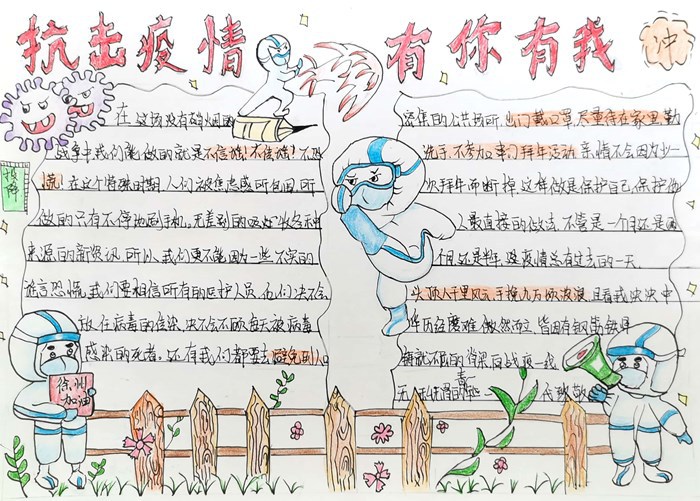 抗击疫情 有你有我
冲
投降
在这场没有硝烟的
战争中我们能做的就是不信谣!不传谣!不恐
慌!在这个特殊时期人们被焦虑感所包围,所
做的只有不停地刷手机,无差别的吸收各种
来源的新资讯,所以,我们更不能因为一些不实的
谣言恐慌,我们要相信所有的医护人员,他们决不会
放任病毒的传染,决不会不顾每天被病毒
感染的死者。还有我们都要去避免到人
密集的公共场所,出门戴口罩,尽量待在家里,勤
洗手,不参加串门拜年活动,亲情不会因为少一
次拜年而断掉,这样做是保护自己,保护他
人最直接的做法,不管是一个月还是两
个月还是半年,这疫情总有过去的一天。
头顶千里风元,手挽九万顷波浪,且看我泱泱中
华历经磨难,傲然而立,皆因有钢筋铁骨
铸就不屈的脊梁,同战疫一线
无
毒
徐州
加油